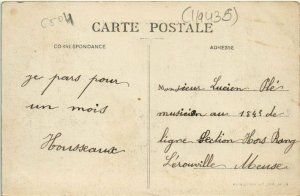 C504
(10435)
CARTE POSTALE
CORRESPONDANCE
ADRESSE
je pars pour
un mois
Housseaux
Monsieur Lucien Olé
musicien au 154e de
ligne Section Hors Rang
Lérouville Meuse